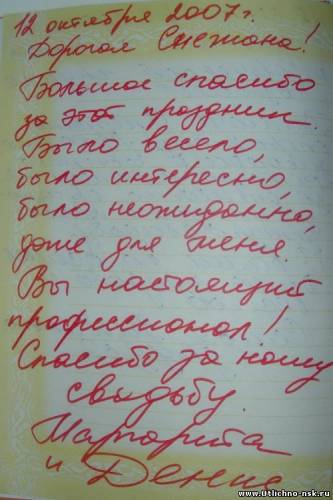 12 октября 2007г.
Дорогая Снежана!
Большое спасибо
за этот праздник.
Было весело,
было интересно,
было неожиданно,
даже для меня.
Вы настоящий
профессионал!
Спасибо за нашу
свадьбу.
Маргарита
и Денис
www.Otlichno-nsk.ru